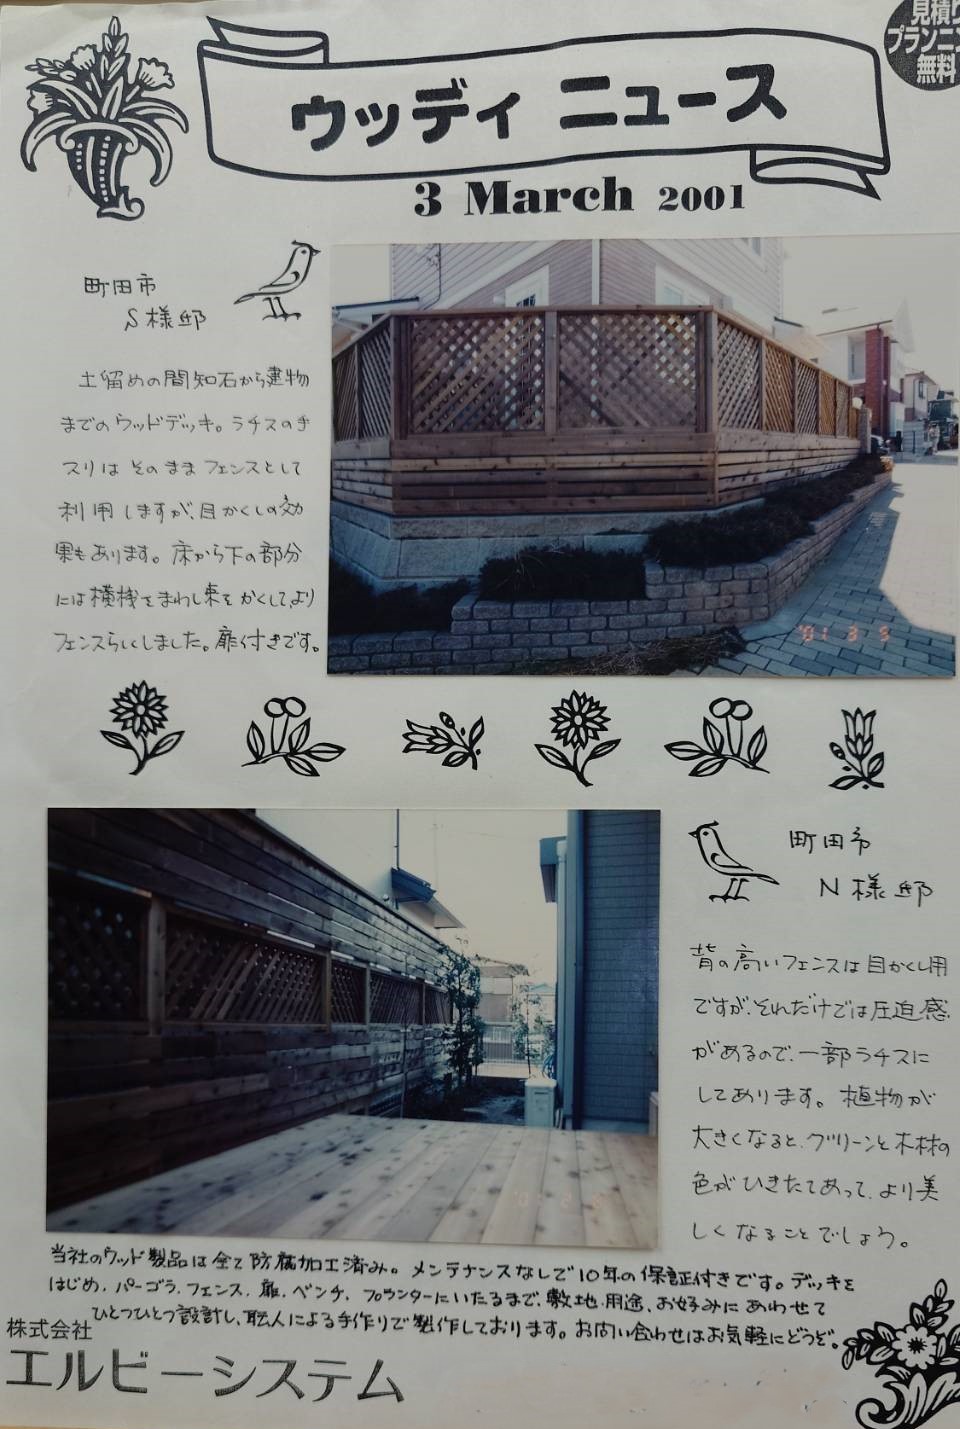 見積り
プランニン
無料
ウッディ ニュース
3 March 2001
町田市
S様邸
土留めの間知石から建物
までのウッドデッキ。ラチスの手
スリは そのまま フェンスとして
利用しますが、目かくしの効
果もあります。床から下の部分
には横桟をまわし束をかくして、より
フェンスらしくしました。扉付きです。
'01 3 3
町田市
N様邸
背の高いフェンスは目かくし用
ですが、それだけでは圧迫感
があるので、一部ラチスに
してあります。植物が
大きくなると、グリーンと木材の
色がひきたてあって、より美
しくなることでしょう。
当社のウッド製品は全て防腐加工済み。メンテナンスなしで10年の保証付きです。デッキを
はじめ、パーゴラ、フェンス、扉、ベンチ、プランターにいたるまで、敷地、用途、お好みにあわせて
ひとつひとつ設計し、職人による手作りで製作しております。お問い合わせはお気軽にどうぞ。
株式会社
エルビーシステム